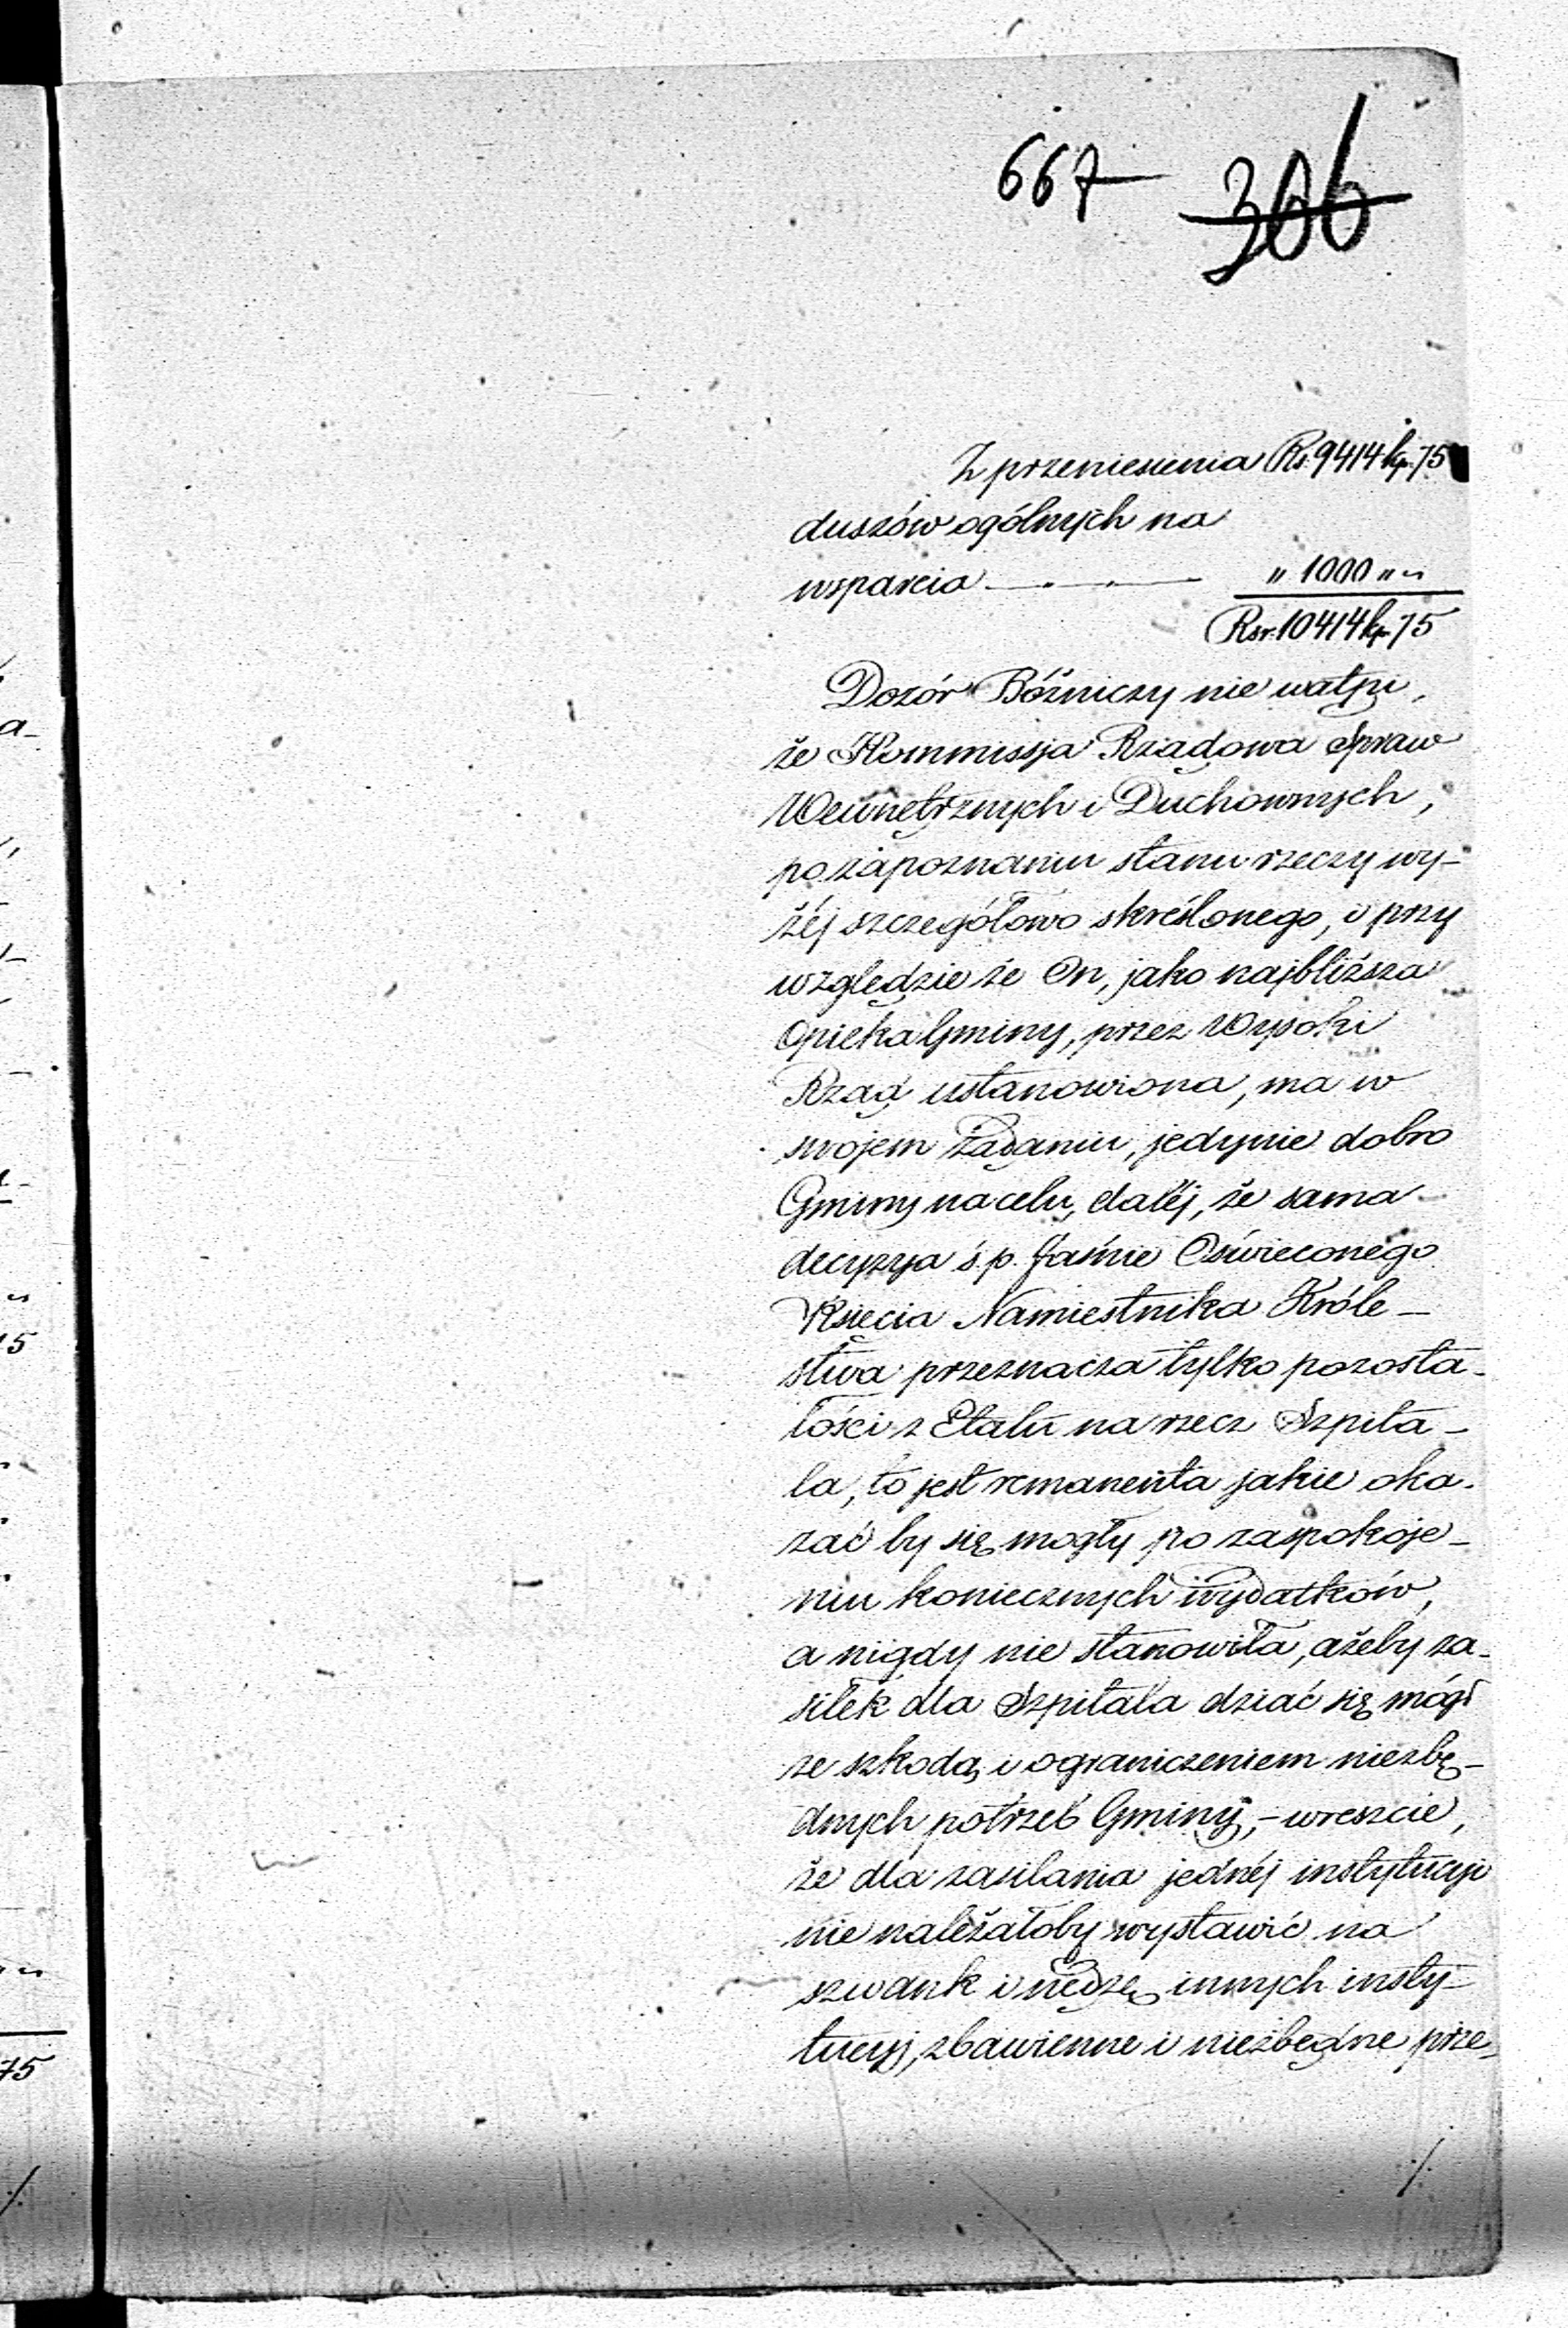 667 306
Z przeniesienia Rs. 9414 kp. 75
duszów ogólnych na
wsparcia — " 1000 " "
Rsr. 10414 kp. 75
Dozór Bóżniczy nie wątpi,
że Kommissja Rządowa Spraw
Wewnętrznych i Duchownych,
po zapoznaniu stanu rzeczy wy-
żéj szczegółowo skreślonego, i przy
względzie że On, jako najbliższa
Opieka Gminy, przez Wysoki
Rząd ustanowiona, ma w
swojem żądaniu, jedynie dobro
Gminy na celu, daléj, że sama
decyzya ś.p. Jaśnie Oświeconego
Księcia Namiestnika Króle-
stwa przeznacza tylko pozosta-
łości z Etatu na rzecz Szpita-
la, to jest remanenta jakie oka-
zać by się mogły po zaspokoje-
niu koniecznych wydatków,
a nigdy nie stanowiła, ażeby za-
siłek dla Szpitala dziać się mógł
ze szkodą i ograniczeniem niezbę-
dnych potrzeb Gminy, - wreszcie,
że dla zasilania jednéj instytucyi
nie należałoby wystawić na
szwank i nędzę innych insty-
tucyj, zbawienne i niezbędne prze-
./.